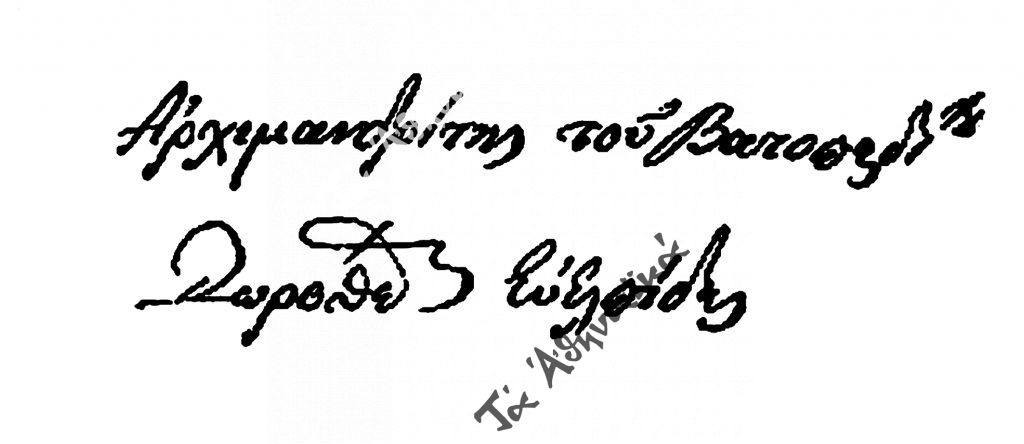 Ἀρχιμανδρίτης τοῦ Βατοπεδ^ίου
Δωροθέος Εὐελπίδης
Τά Ἀθηναϊκά